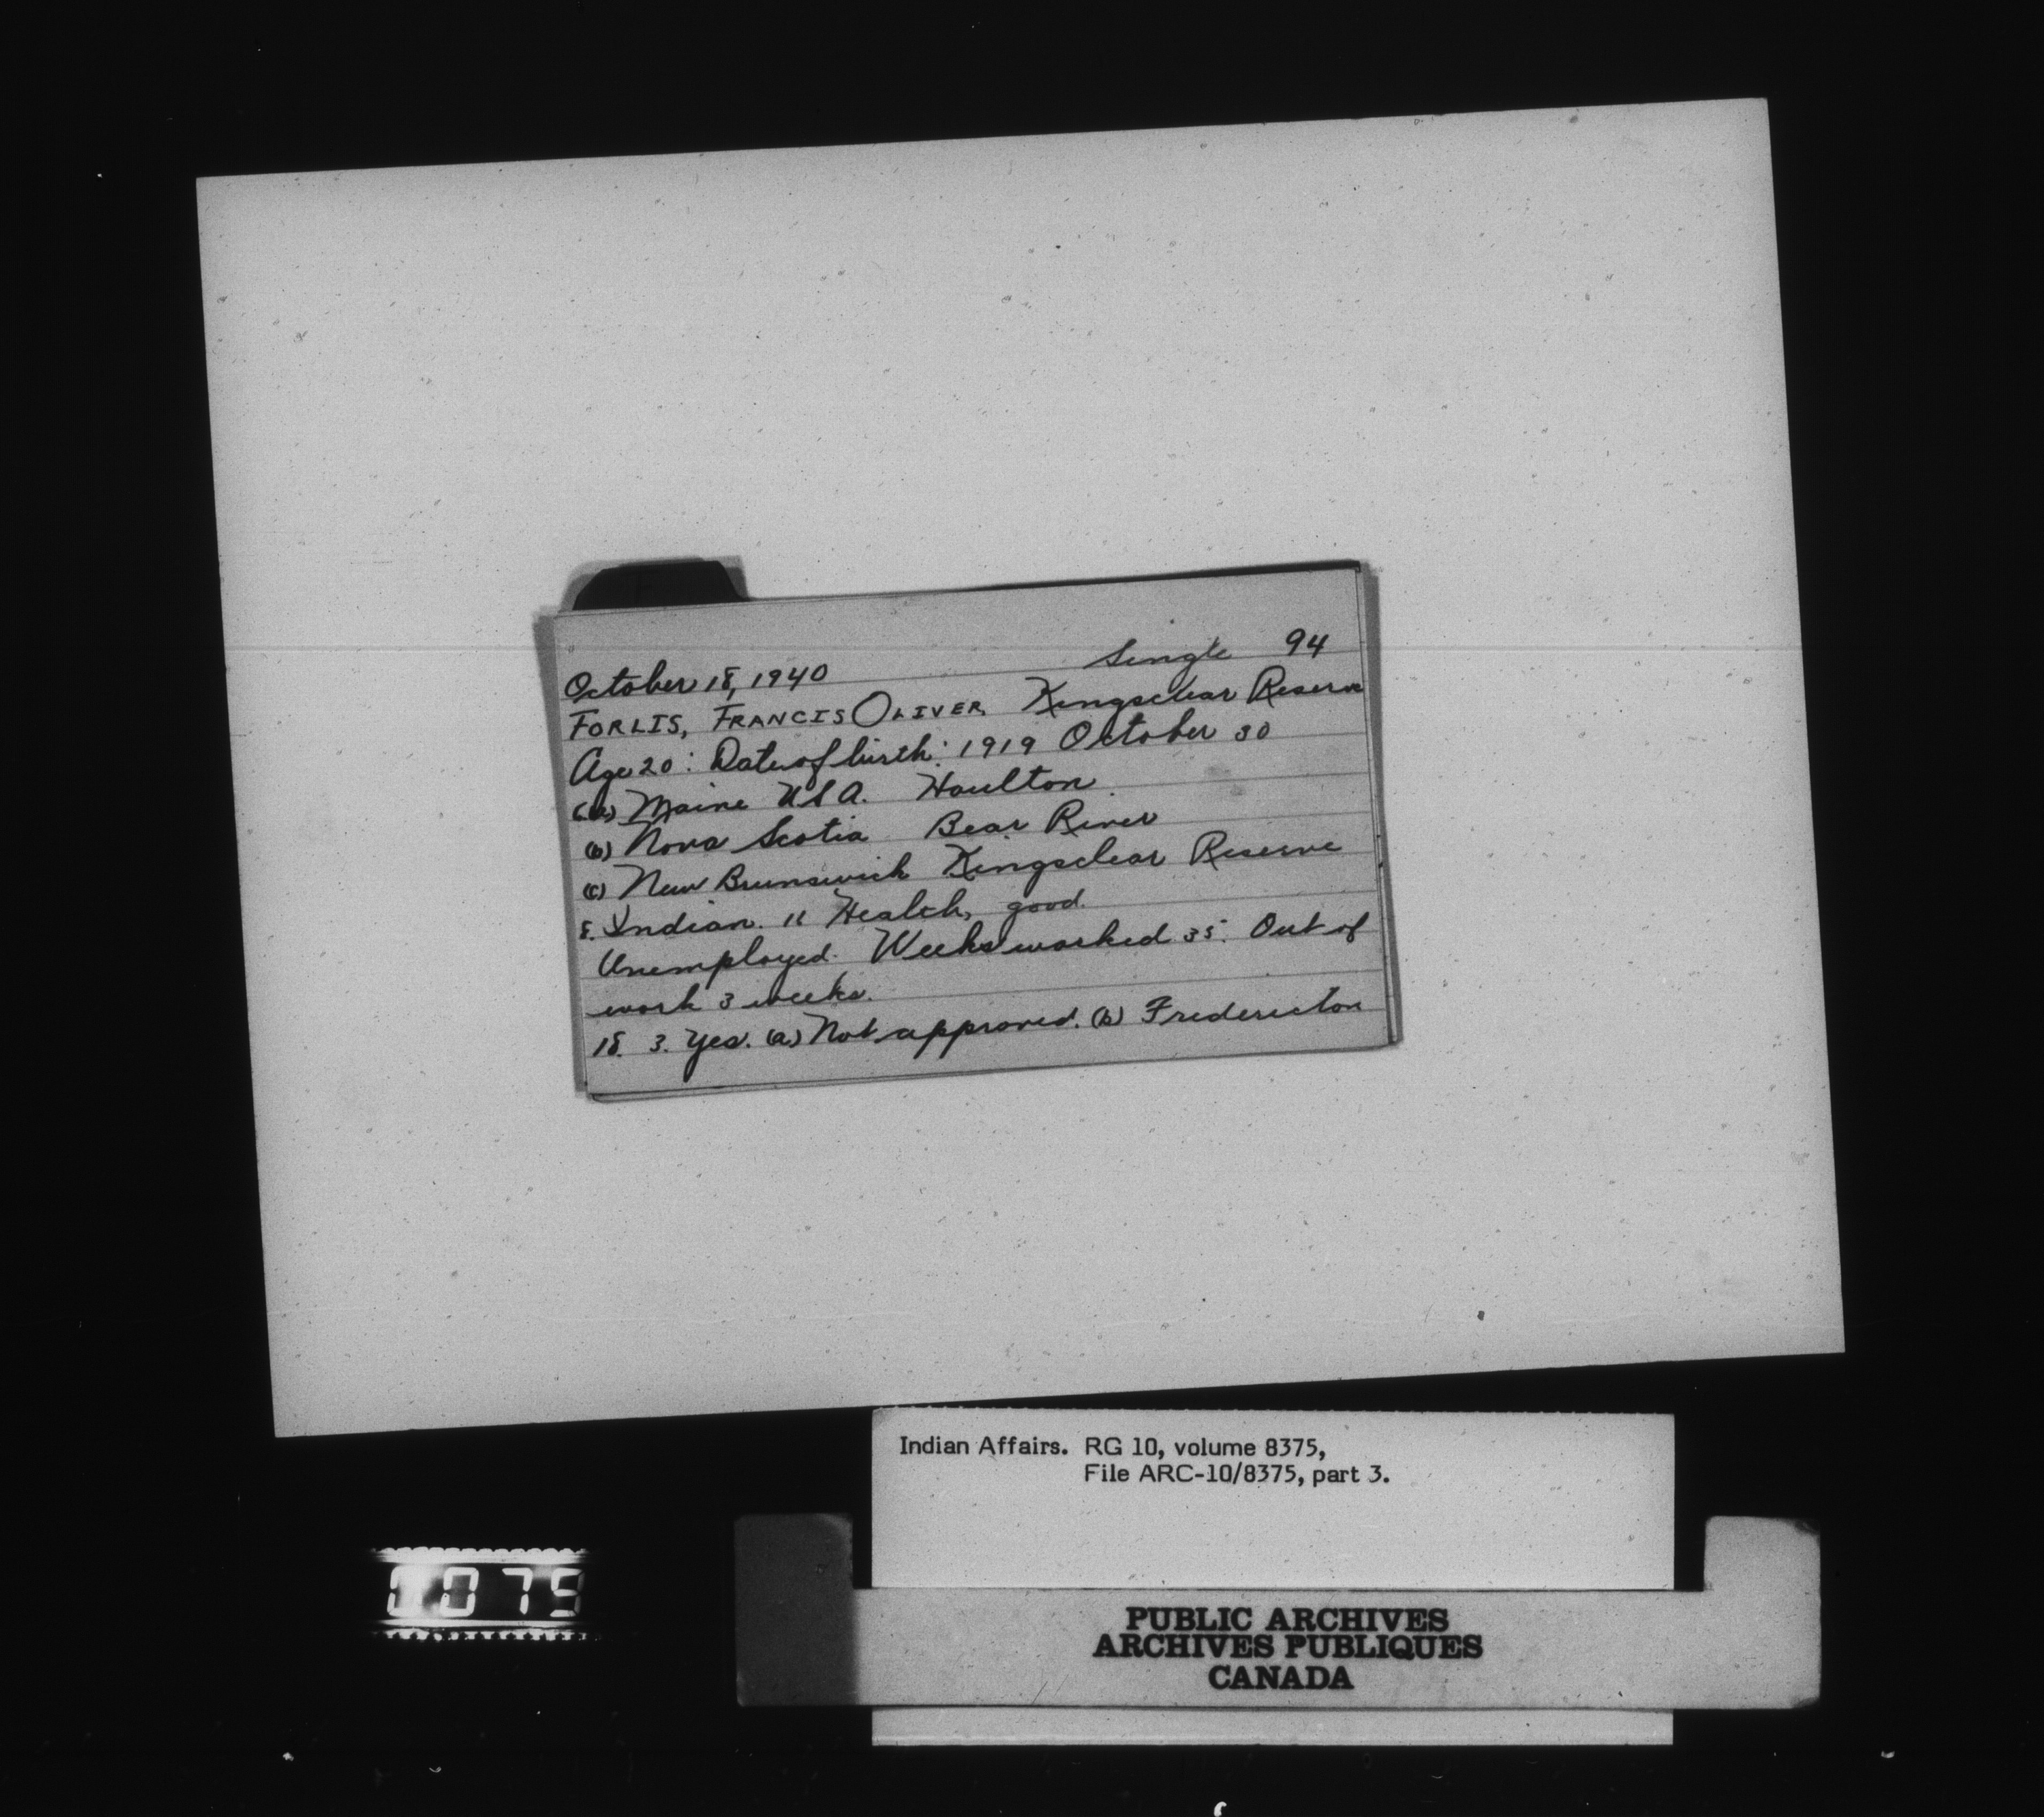 Single 94
October 18, 1940
FORLIS, FRANCIS OLIVER. Kingsclear Reserve
Age 20: Date of birth: 1919 October 30
(a) Maine U S A. Houlton.
(b) Nova Scotia Bear River
(c) New Brunswick Kingsclear Reserve
8. Indian. 11 Health, good.
Unemployed. Weeks worked 35. Out of
work 3 weeks.
18. 3. Yes. (a) Not approved. (b) Fredericton
Indian Affairs. RG 10, volume 8375,
File ARC-10/8375, part 3.
0075
PUBLIC ARCHIVES
ARCHIVES PUBLIQUES
CANADA